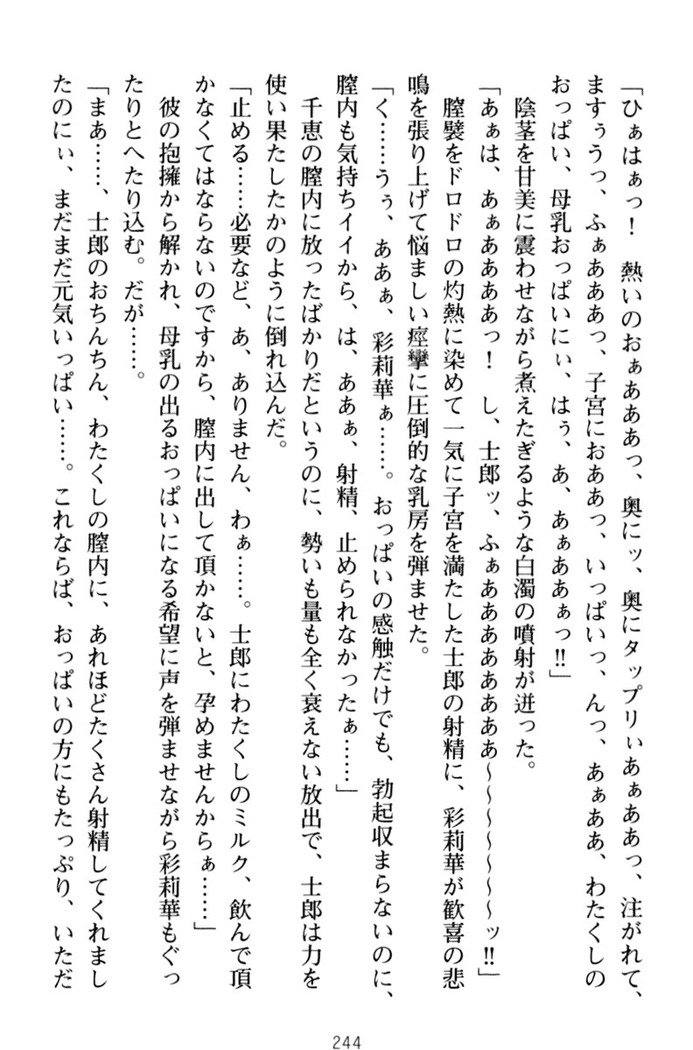 「ひぁはぁっ！　熱いのおぁあああっ、奥にッ、奥にタップリぃあぁああっ、注がれて、
ますぅうっ、ふぁあああっ、子宮におああっ、いっぱいっ、んっ、あぁああ、わたくしの
おっぱい、母乳おっぱいにぃ、はぅ、あ、あぁああぁっ‼」
　陰茎を甘美に震わせながら煮えたぎるような白濁の噴射が迸った。
「あぁは、あぁああああっ！　し、士郎ッ、ふぁああああああああ〜〜〜〜〜〜ッ‼」
　膣襞をドロドロの灼熱に染めて一気に子宮を満たした士郎の射精に、彩莉華が歓喜の悲
鳴を張り上げて悩ましい痙攣に圧倒的な乳房を弾ませた。
「く……うぅ、ああぁ、彩莉華ぁ……。おっぱいの感触だけでも、勃起収まらないのに、
膣内も気持ちイイから、は、ああぁ、射精、止められなかったぁ……」
　千恵の膣内に放ったばかりだというのに、勢いも量も全く衰えない放出で、士郎は力を
使い果たしたかのように倒れ込んだ。
「止める……必要など、あ、ありません、わぁ……。士郎にわたくしのミルク、飲んで頂
かなくてはならないのですから、膣内に出して頂かないと、孕めませんからぁ……」
　彼の抱擁から解かれ、母乳の出るおっぱいになる希望に声を弾ませながら彩莉華もぐっ
たりとへたり込む。だが……。
「まあ……、士郎のおちんちん、わたくしの膣内に、あれほどたくさん射精してくれまし
たのにぃ、まだまだ元気いっぱい……。これならば、おっぱいの方にもたっぷり、いただ
244